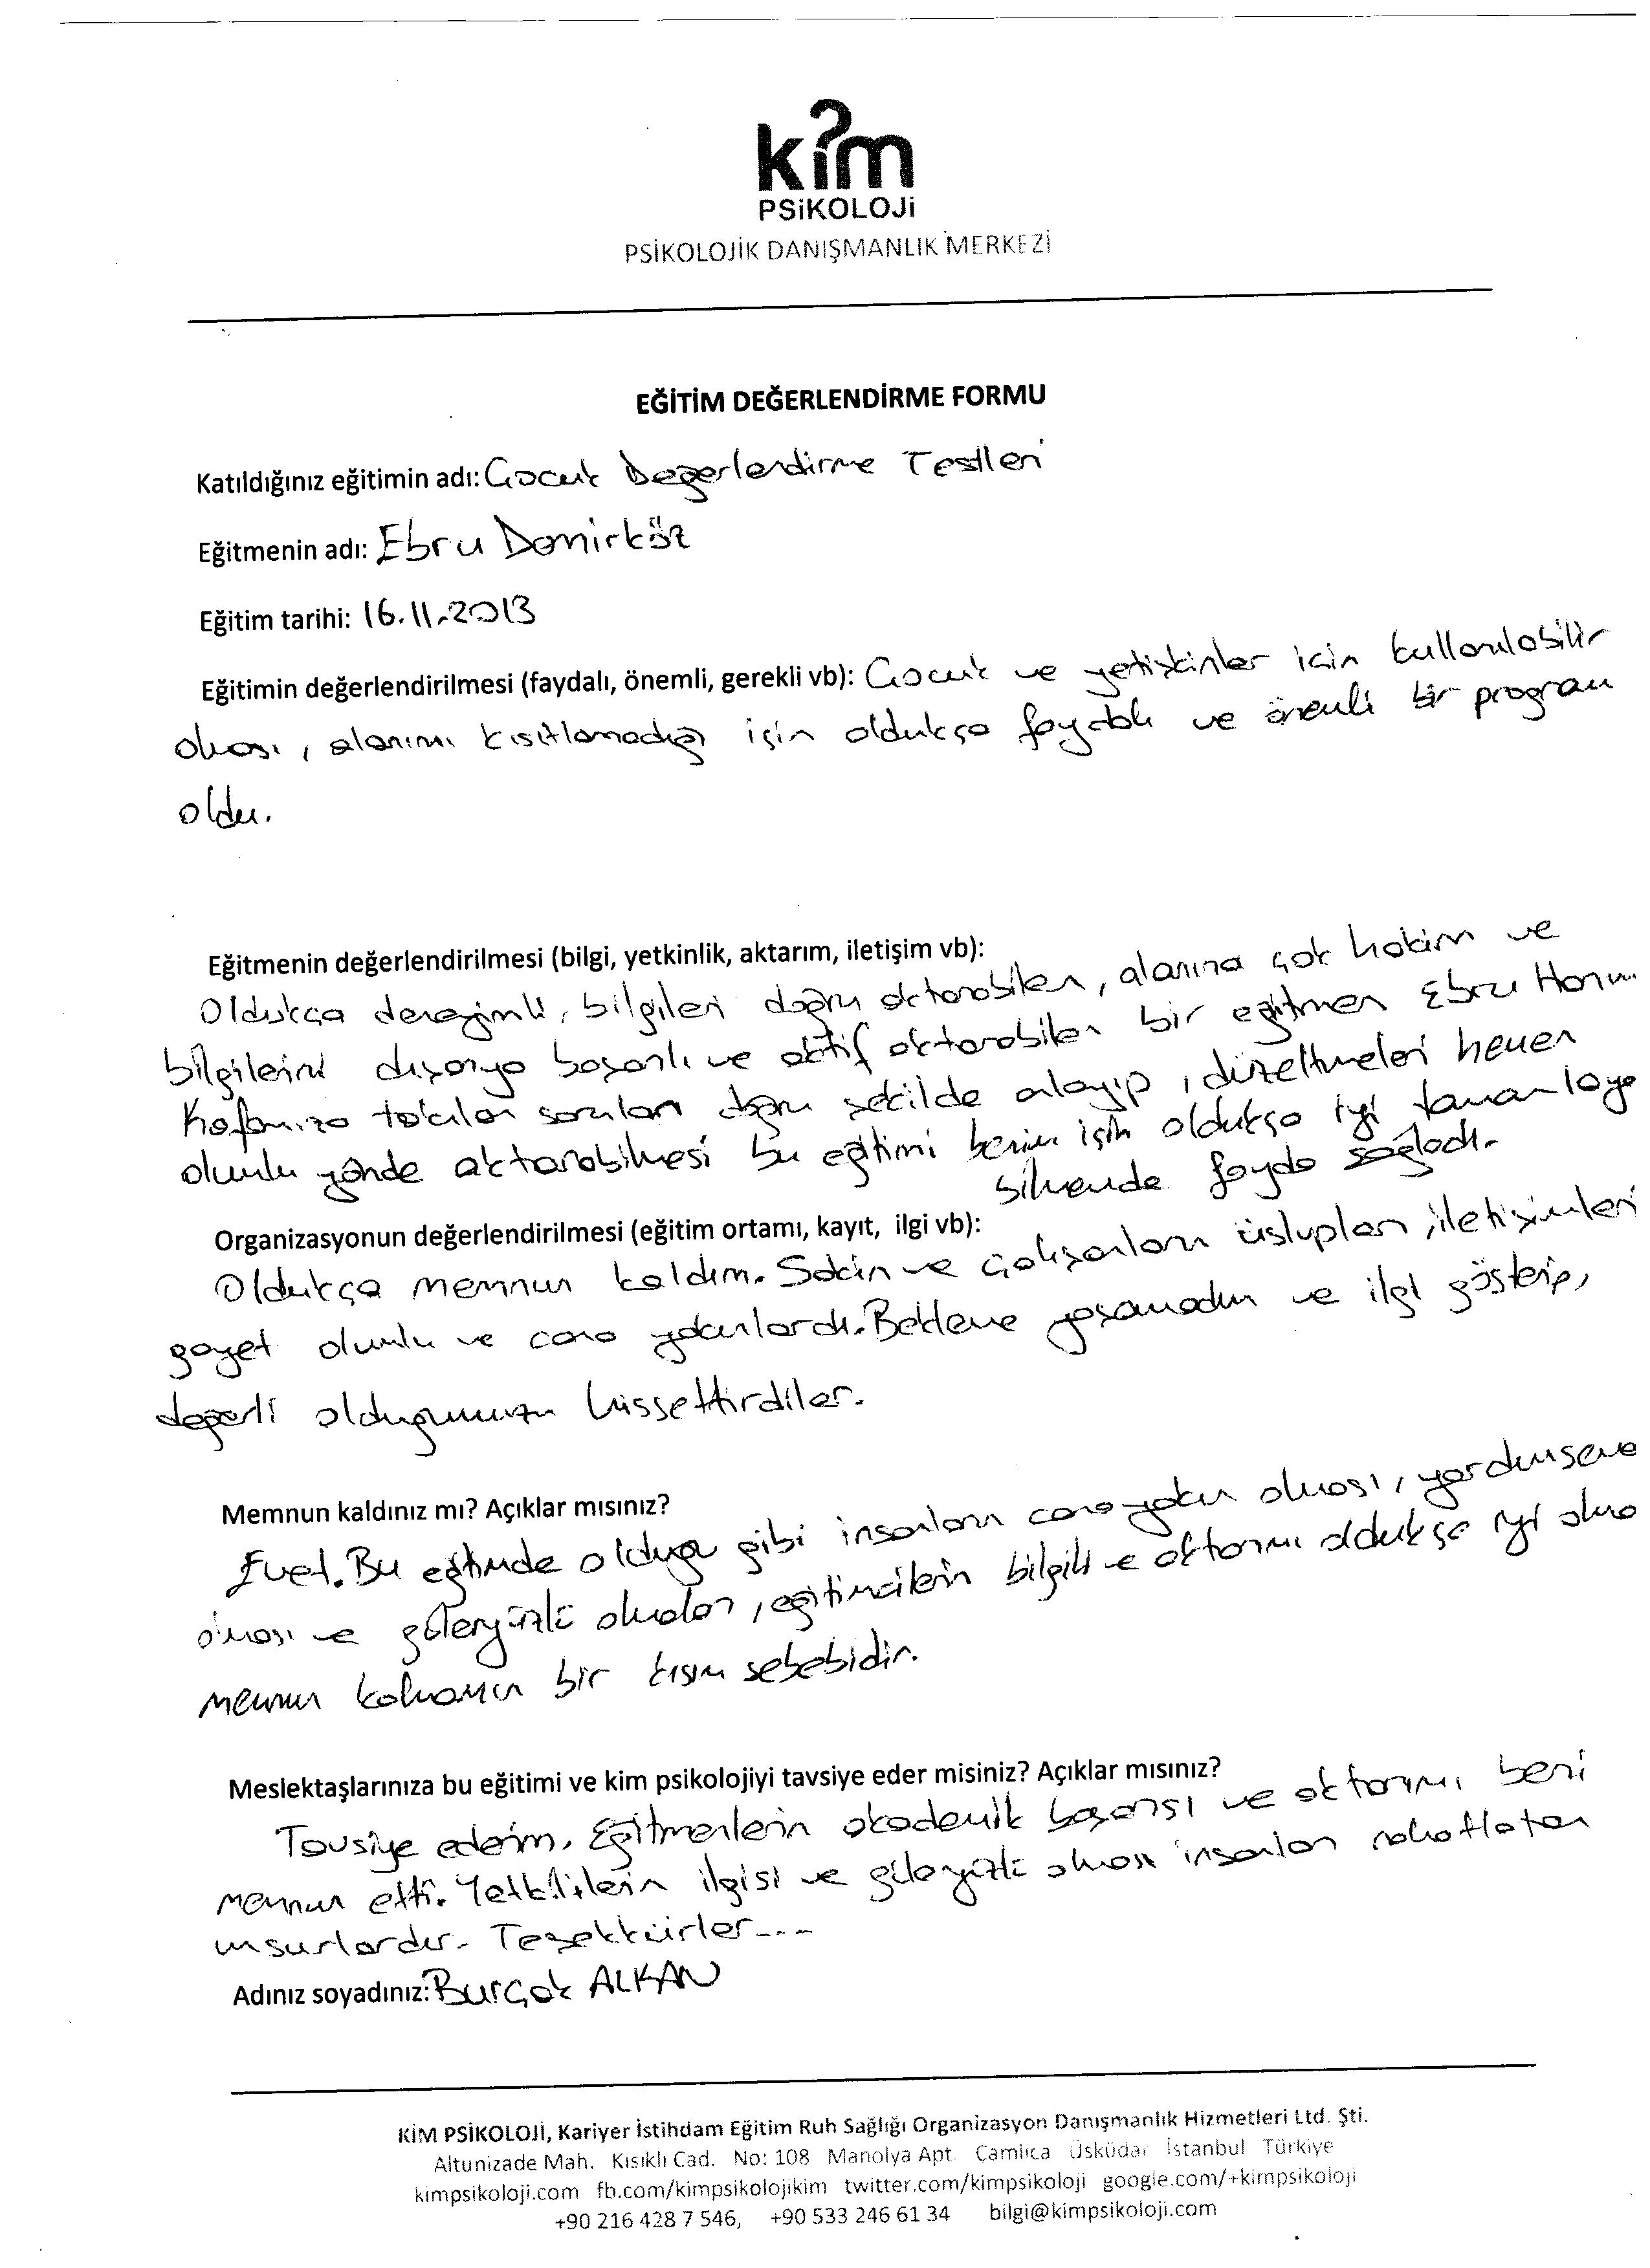 kim
PSiKOLOJi
PSİKOLOJİK DANIŞMANLIK MERKEZİ
EĞİTİM DEĞERLENDİRME FORMU
Katıldığınız eğitimin adı: Çocuk Değerlendirme Testleri
Eğitmenin adı: Ebru Demirköz
Eğitim tarihi: 16.11.2013
Eğitimin değerlendirilmesi (faydalı, önemli, gerekli vb): Çocuk ve yetişkinler için kullanılabilir
olması, alanımı kısıtlamadığı için oldukça faydalı ve önemli bir program
oldu.
Eğitmenin değerlendirilmesi (bilgi, yetkinlik, aktarım, iletişim vb):
Oldukça deneyimli, bilgileri doğru aktarabilen, alanına çok hakim ve
bilgilerini dışarıya başarılı ve aktif aktarabilen bir eğitmen Ebru Hanım.
Kafamıza takılan soruları doğru şekilde anlayıp, düzeltmeleri hemen
olumlu yönde aktarabilmesi bu eğitimi benim için oldukça iyi tamamlaya
bilmemde fayda sağladı.
Organizasyonun değerlendirilmesi (eğitim ortamı, kayıt, ilgi vb):
Oldukça memnun kaldım. Sakin ve çalışanların üslupları, iletişimleri
gayet olumlu ve cana yakınlardı. Bekleme yaşamadım ve ilgi gösterip,
değerli olduğumuzu hissettirdiler.
Memnun kaldınız mı? Açıklar mısınız?
Evet. Bu eğitimde olduğu gibi insanların cana yakın olması, yardımseve
olması ve güleryüzlü olmaları, eğitimcilerin bilgili ve aktarımı oldukça iyi olma
memnun kalmamın bir kısım sebebidir.
Meslektaşlarınıza bu eğitimi ve kim psikolojiyi tavsiye eder misiniz? Açıklar mısınız?
Tavsiye ederim. Eğitmenlerin akademik başarısı ve aktarımı beni
memnun etti. Yetkililerin ilgisi ve güleryüzlü olması insanları rahatlatan
unsurlardır. Teşekkürler...
Adınız soyadınız: Burçak ALKAN
KİM PSİKOLOJİ, Kariyer İstihdam Eğitim Ruh Sağlığı Organizasyon Danışmanlık Hizmetleri Ltd. Şti.
Altunizade Mah. Kısıklı Cad. No: 108 Manolya Apt. Çamlıca Üsküdar İstanbul Türkiye
kimpsikoloji.com fb.com/kimpsikolojikim twitter.com/kimpsikoloji google.com/+kimpsikoloji
+90 216 428 7 546, +90 533 246 61 34 bilgi@kimpsikoloji.com